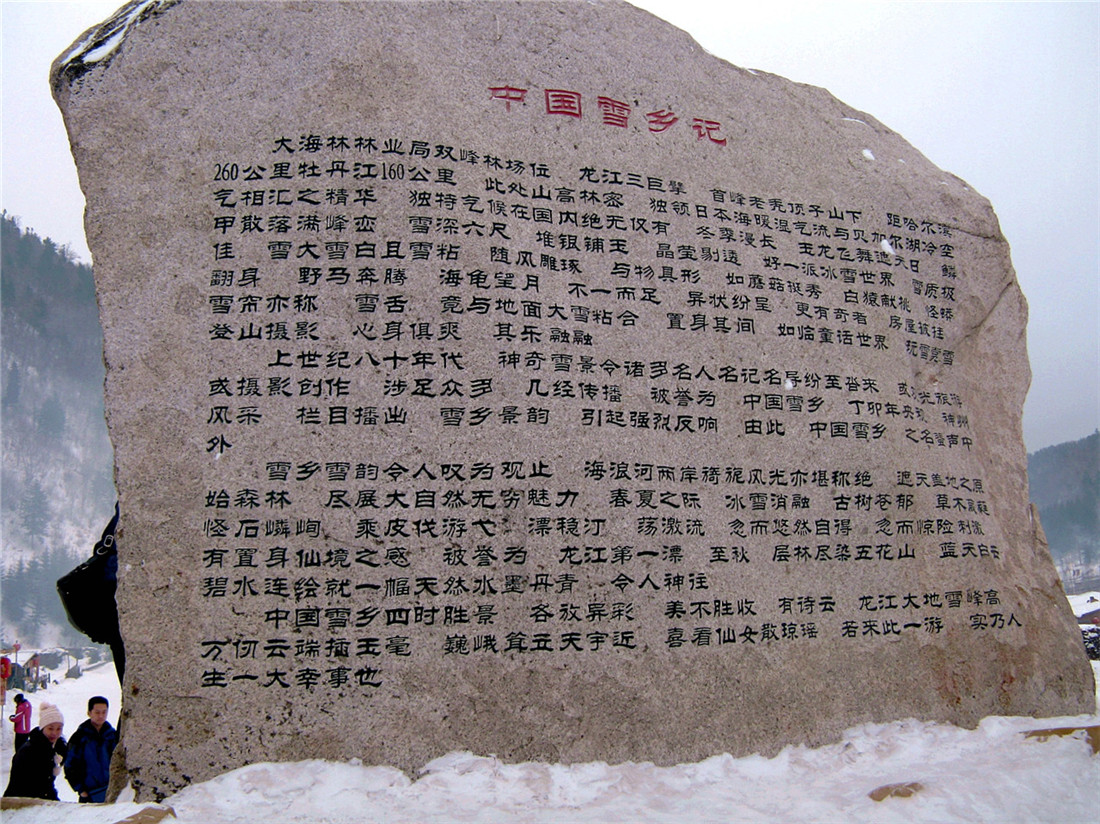 中国雪乡记
大海林林业局双峰林场位 龙江三巨擘 首峰老秃顶子山下 距哈尔滨
260公里牡丹江160公里 此处山高林密 独领日本海暖湿气流与贝加尔湖冷空
气相汇之精华 独特气候在国内绝无仅有 冬季漫长 玉龙飞舞遮天日 鳞
甲散落满峰峦 雪深六尺 堆银铺玉 晶莹剔透 好一派冰雪世界 雪质极
佳 雪大雪白且雪粘 随风雕琢 与物具形 如蘑菇挺秀 白猿献桃 怪蟒
翻身 野马奔腾 海龟望月 不一而足 异状纷呈 更有奇者 房屋披挂
雪帘亦称 雪舌 竟与地面大雪粘合 置身其间 如临童话世界 玩雪赏雪
登山摄影 心身俱爽 其乐融融
上世纪八十年代 神奇雪景令诸多名人名记名导纷至沓来 或观光旅游
或摄影创作 涉足众多 几经传播 被誉为 中国雪乡 丁卯年央视 神州
风采 栏目播出 雪乡景韵 引起强烈反响 由此 中国雪乡 之名蜚声中
外
雪乡雪韵令人叹为观止 海浪河两岸旖旎风光亦堪称绝 遮天盖地之原
始森林 尽展大自然无穷魅力 春夏之际 冰雪消融 古树苍郁 草木葳蕤
怪石嶙峋 乘皮伐游弋 漂稳汀 荡激流 忽而悠然自得 忽而惊险刺激
有置身仙境之感 被誉为 龙江第一漂 至秋 层林尽染五花山 蓝天白云
碧水连绘就一幅天然水墨丹青 令人神往
中国雪乡四时胜景 各放异彩 美不胜收 有待云 龙江大地雪峰高
万仞云端插玉毫 巍峨耸立天宇近 喜看仙女散琼瑶 若来此一游 实乃人
生一大幸事也